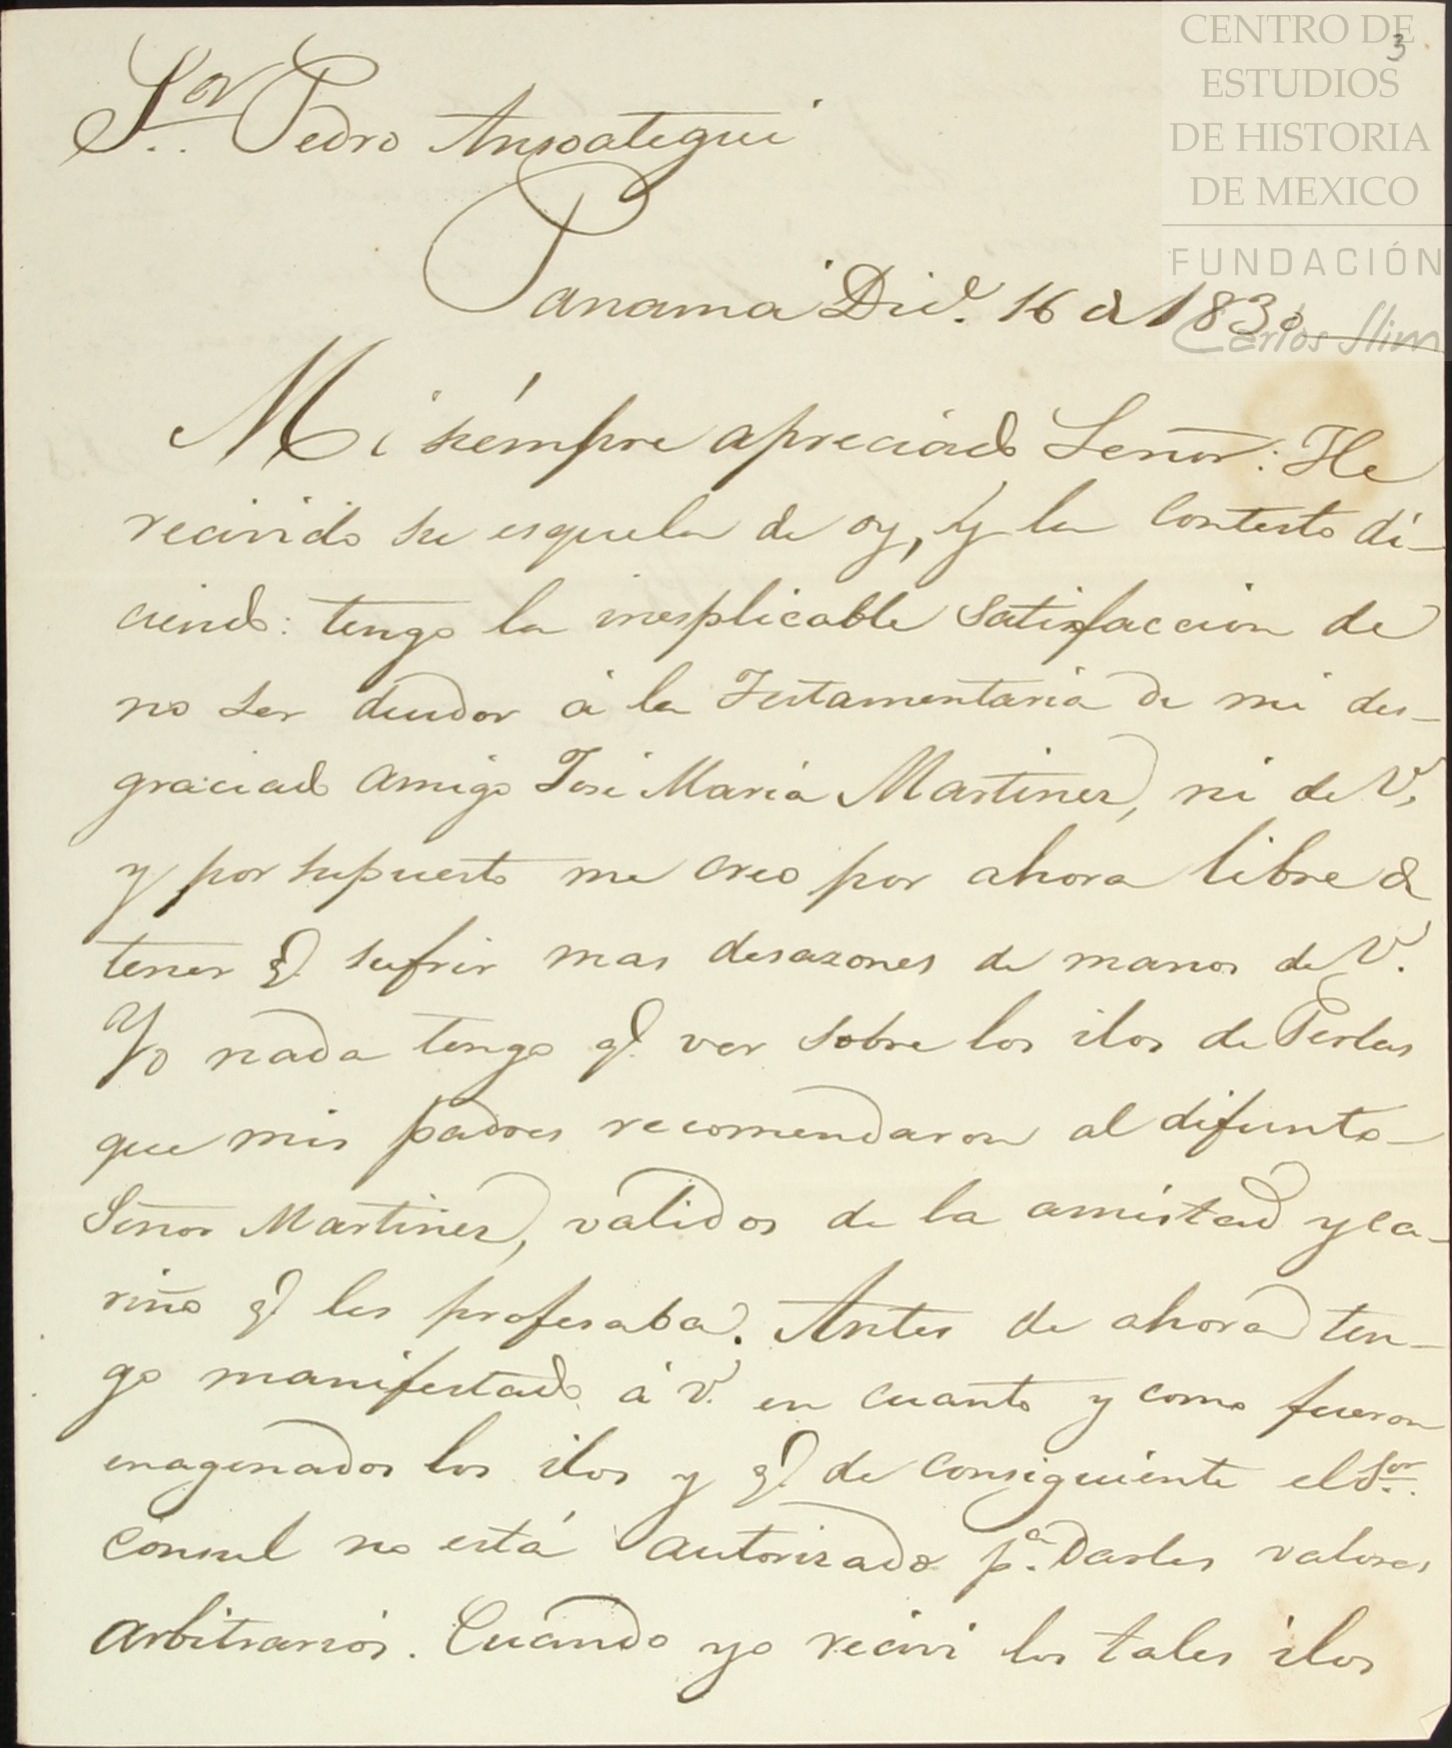 CENTRO DE
ESTUDIOS
DE HISTORIA
DE MEXICO
FUNDACIÓN
Carlos Slim
3
Sor. Pedro Ansoategui
Panamá Dice. 16 de 1830
Mi siempre apreciado Señor: He
recivido su esquela de oy, y la contesto di-
ciendo: tengo la inesplicable satisfaccion de
no ser deudor á la Testamentaria de mi des-
graciado amigo José Maria Martinez, ni de V.
y por supuesto me creo por ahora libre de
tener q. sufrir mas desazones de manos de V.
Yo nada tengo q. ver sobre los ilos de Perlas
que mis padres recomendaron al difunto
Señor Martinez, validos de la amistad y ca-
riño q. les profesaba. Antes de ahora ten-
go manifestado á V. en cuanto y como fueron
enagenados los ilos y q. de consiguiente el Sor.
consul no está autorizado pa. darles valores
arbitrarios. Cuando yo recivi los tales ilos